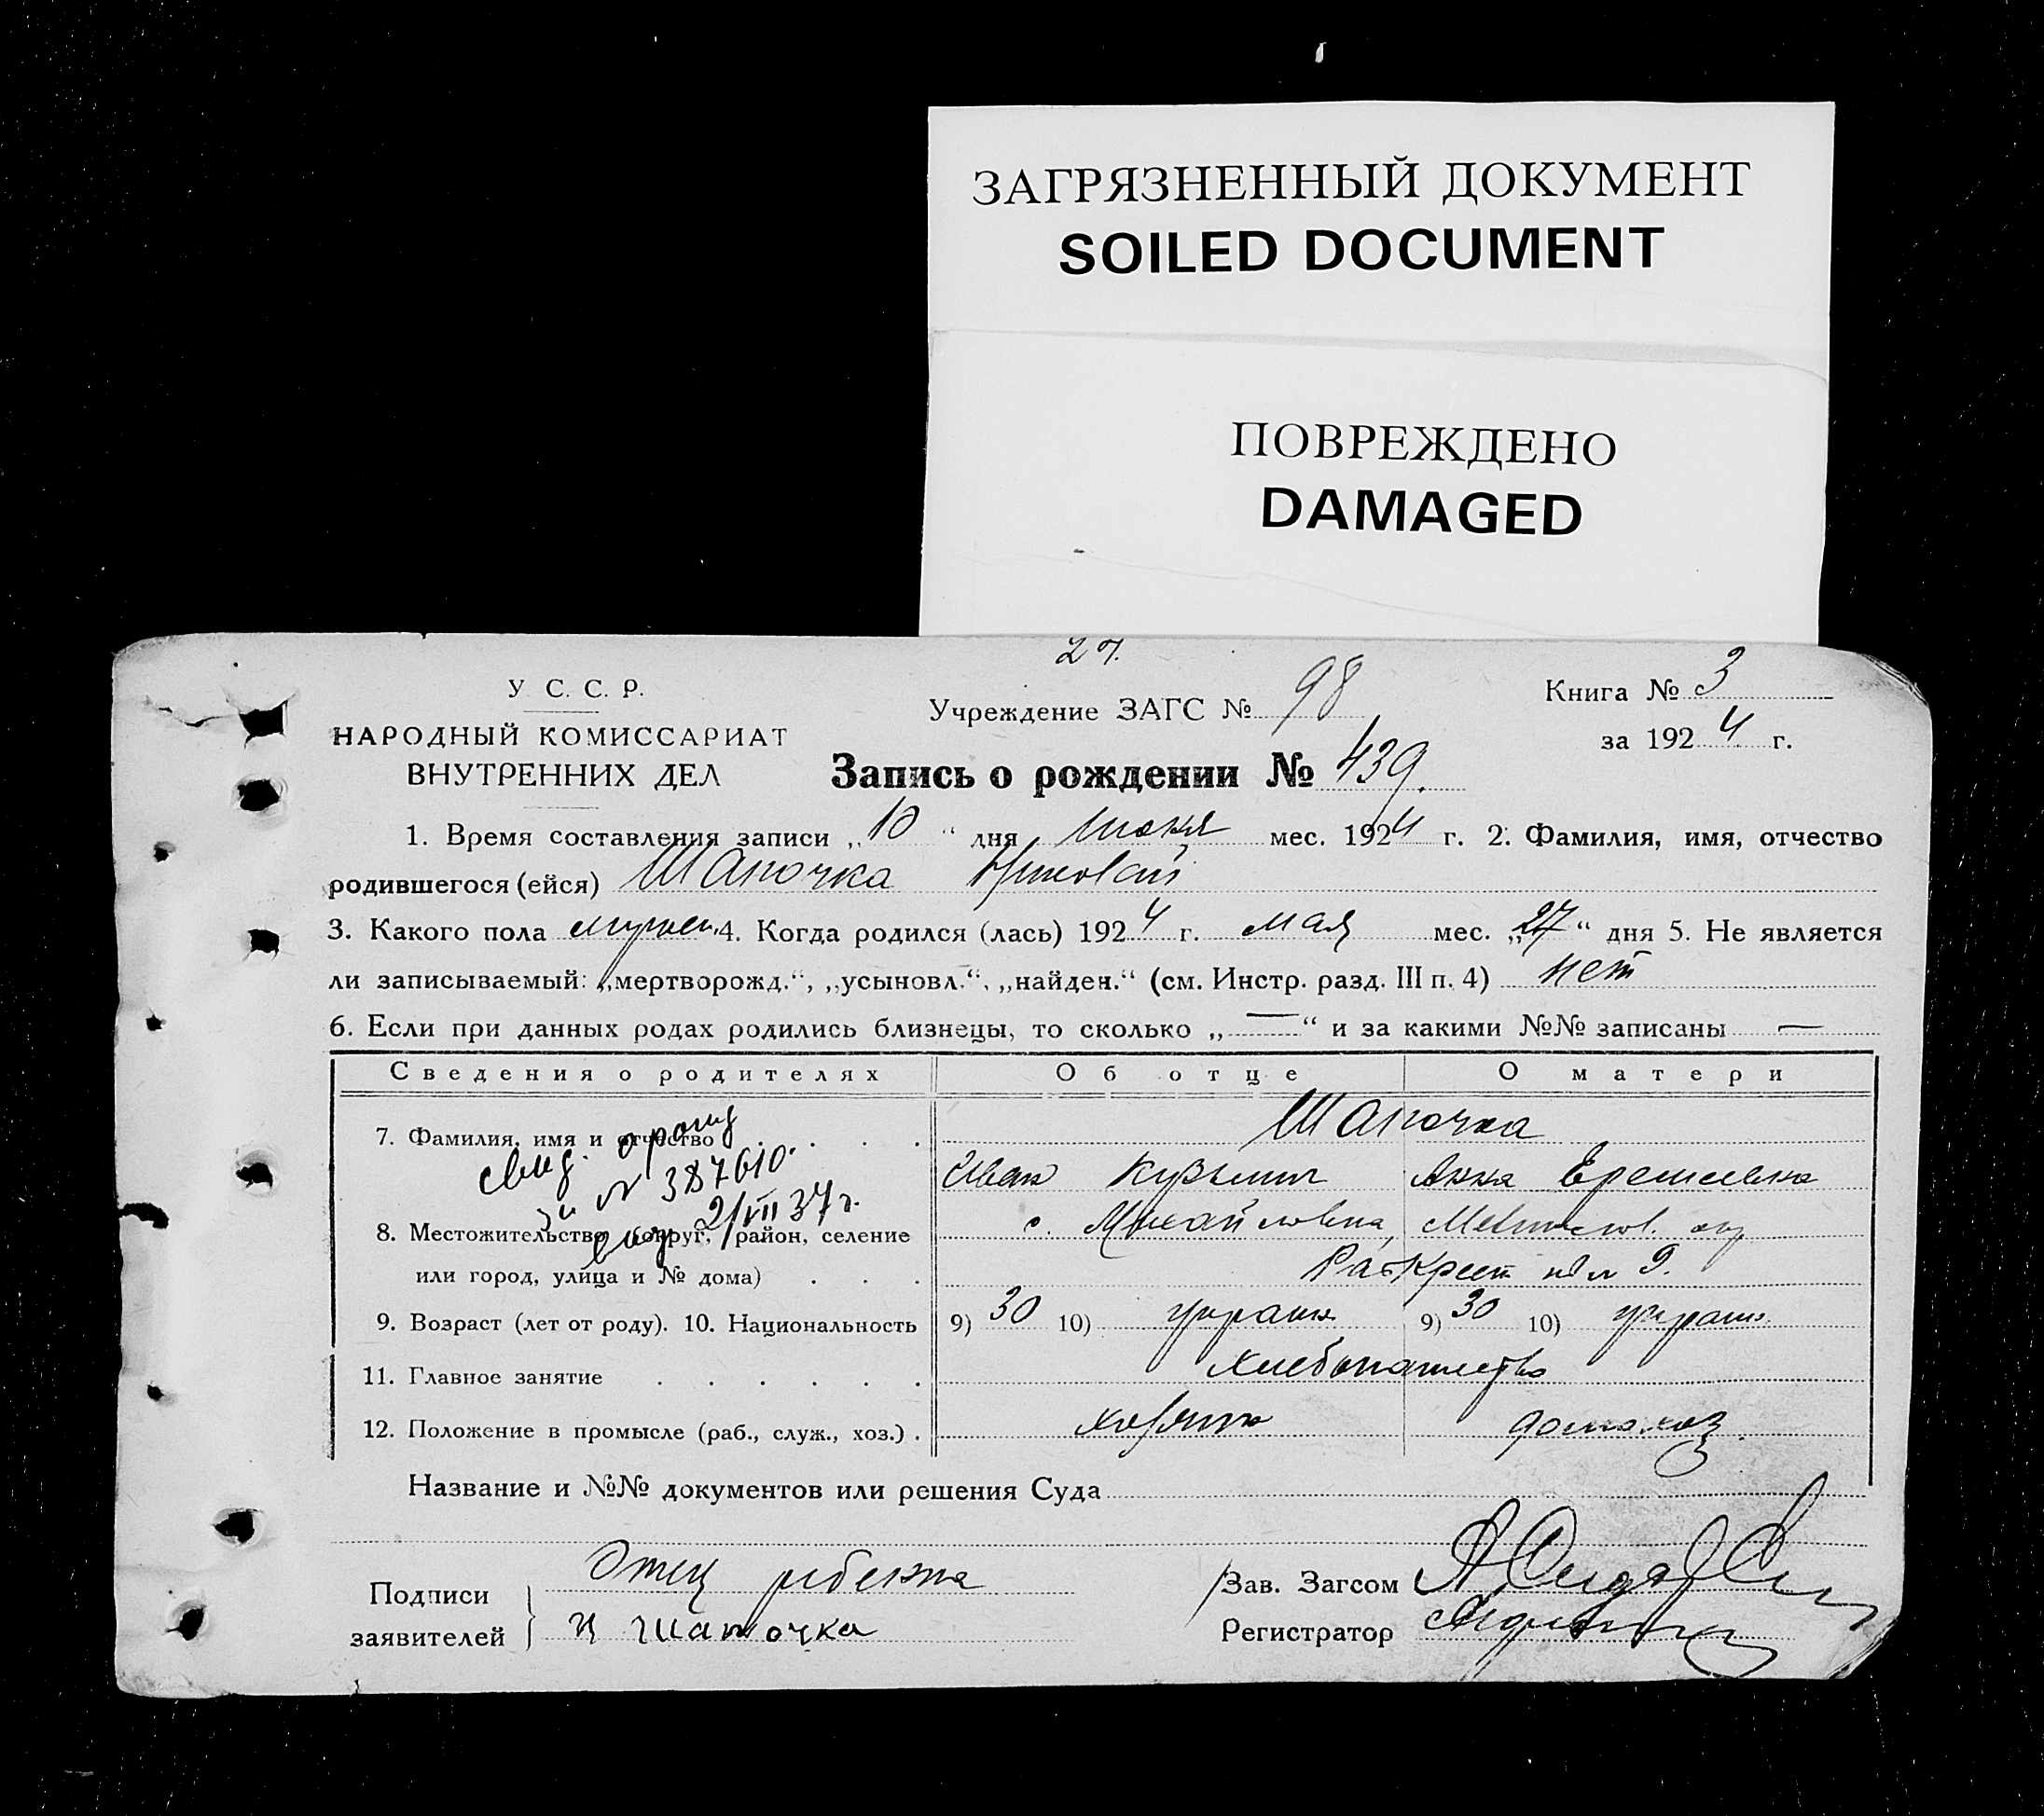 ЗАГРЯЗНЕННЫЙ ДОКУМЕНТ
SOILED DOCUMENT
ПОВРЕЖДЕНО
DAMAGED
27.
У С. С. Р.
НАРОДНЫЙ КОМИССАРИАТ
ВНУТРЕННИХ ДЕЛ
Учреждение ЗАГС № 98
Книга № 3
за 1924 г.
Запись о рождении № 439.
1. Время составления записи „10“ дня июня мес. 1924 г. 2. Фамилия, имя, отчество
родившегося (ейся) Шапочка Николай
3. Какого пола мужск. 4. Когда родился (лась) 1924 г. мая мес. „27“ дня 5. Не является
ли записываемый: „мертворожд.“, „усыновл.“, „найден.“ (см. Инстр. разд. III п. 4) нет
6. Если при данных родах родились близнецы, то сколько „—“ и за какими №№ записаны —
Сведения о родителях Об отце О матери
7. Фамилия, имя и отчество . . . . Шапочка
Иван Кузьмич Анна Еремеевна
свид. о рожд
за N 387610.
выд 2/VII 37 г.
8. Местожительство (округ, район, селение с. Михайловка,
или город, улица и № дома) . . .
9. Возраст (лет от роду). 10. Национальность 9) 30 10) украин 9) 30 10) украин.
11. Главное занятие . . . . . . хлебопашество
12. Положение в промысле (раб., служ., хоз.) . хозяин домохоз.
Название и №№ документов или решения Суда
Подписи
заявителей
Отец ребенка
И Шапочка
Зав. Загсом
Регистратор